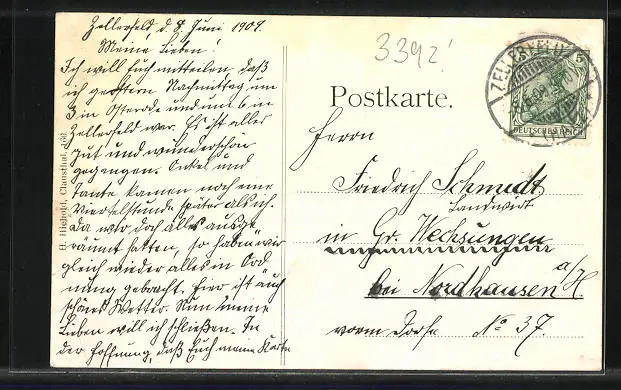 Zellerfeld, d. 8. Juni 1909.
Meine Lieben!
Ich will Euch mitteilen, daß
ich gestern Nachmittag um
3 in Osterode und um 6 in
Zellerfeld war. Es ist alles
gut und wunderschön
gegangen. Onkel und
Tante kamen noch eine
Viertelstunde später als ich.
Da wir doch alles ausge
räumt hatten, so haben wir
gleich wieder alles in Ord
nung gebracht. Hier ist auch
schönes Wetter. Nun meine
Lieben will ich schließen. In
der Hoffnung, daß Euch meine Karte
H. Clausthal.
3392!
Postkarte.
ZELLERFELD
5
DEUTSCHES REICH
Herrn
Friedrich Schmidt
Landwirt
in Gr. Wechsungen
bei Nordhausen a/H.
vorm Dorfe No 37.